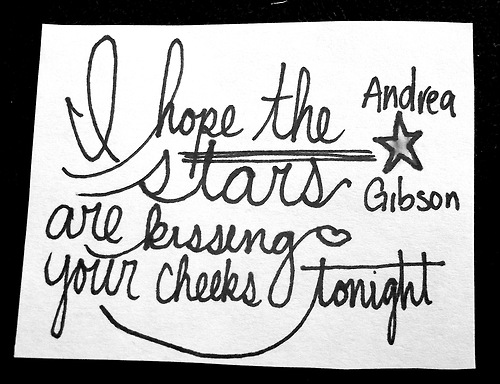 I hope the
stars
are kissing
your cheeks
tonight
Andrea
Gibson